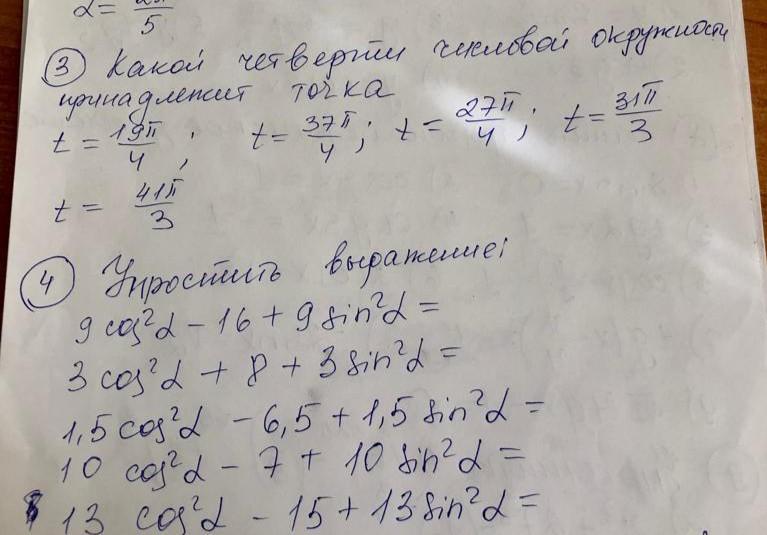 α = 2π/5
③ Какой четверти числовой окружности
принадлежит точка
t = 19π/4 ; t = 37π/4 ; t = 27π/4 ; t = 31π/3
t = 41π/3
④ Упростить выражение:
9 cos²α - 16 + 9 sin²α =
3 cos²α + 8 + 3 sin²α =
1,5 cos²α - 6,5 + 1,5 sin²α =
10 cos²α - 7 + 10 sin²α =
13 cos²α - 15 + 13 sin²α =